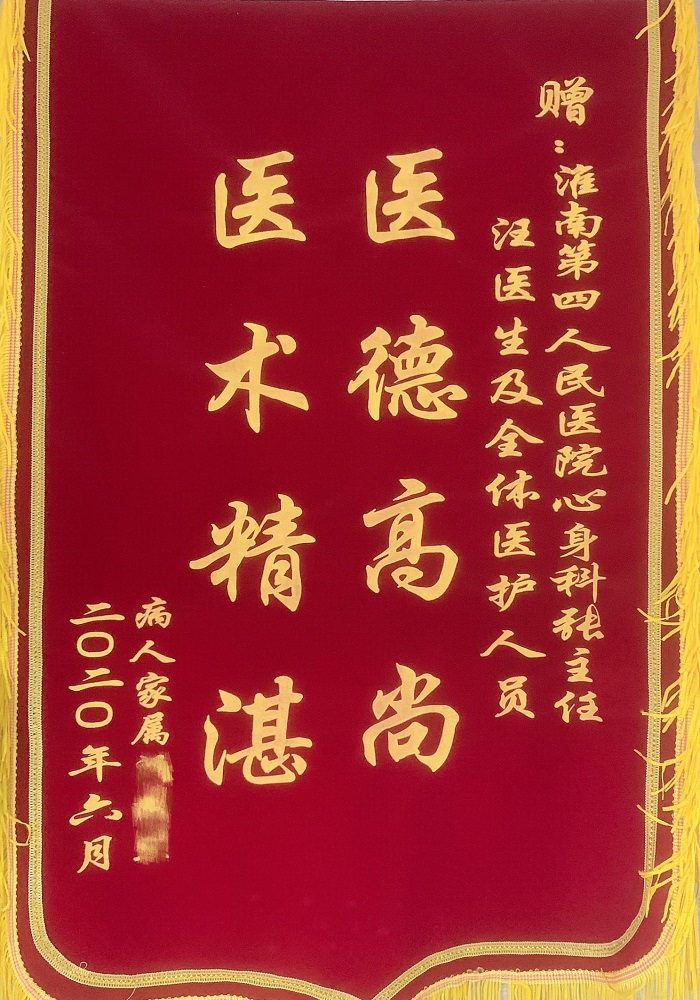 赠：淮南第四人民医院心身科张主任
汪医生及全体医护人员
医德高尚
医术精湛
病人家属
二〇二〇年六月